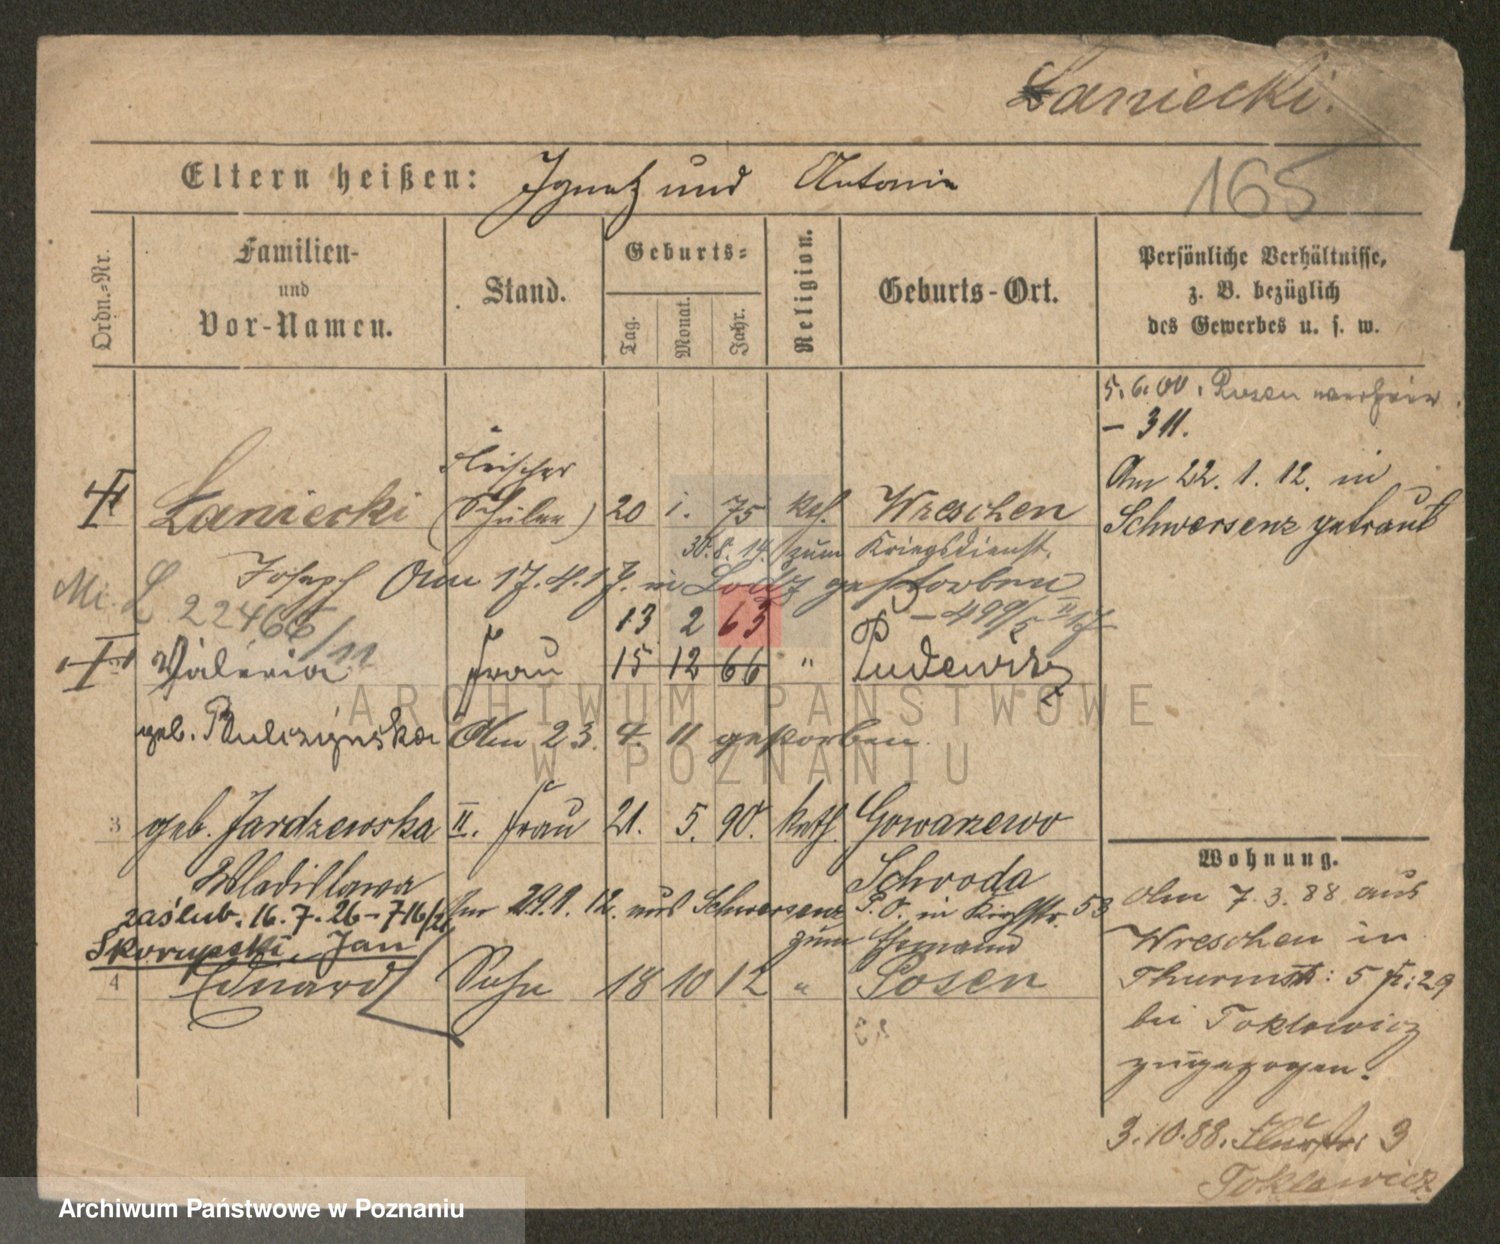 Łaniecki.
Eltern heißen: Ignatz und Antonie
165
Ordn.-Nr.
Familien-
und
Vor-Namen.
Stand.
Geburts-
Tag.
Monat.
Jahr.
Religion.
Geburts-Ort.
Persönliche Verhältnisse,
z. B. bezüglich
des Gewerbes u. s. w.
5. 6. 00. Posen
- 311.
Am 22. 1. 12. in
Schwersenz getraut
Fleischer
Łaniecki (Schüler) 20 1. 75 kath. Wreschen
30. 8. 14. zum Kriegsdienst.
Joseph Am 17. 4. 17. in Lodz gestorben
L 22466/11
13 2 63
Valéria Frau 15 12 66 " Pudewitz
geb. Am 23. 4. 11 gestorben
3 geb. Jardzewska II. Frau 21. 5. 90. kath. Gowarzewo
Wladislawa Schroda
zaślub. 16. 7. 26 - 716/21 Am 29. 1. 12. aus Schwersenz P. O. in Kirchstr. 53
Skorupecki Jan zum Ehemann
4 Eduard Sohn 18 10 12 " Posen
Wohnung.
Am 7. 3. 88 aus
Wreschen in
Thurmstr: 5 p: 29
bei Toklowicz
zugezogen.
3. 10. 88. 3
Toklawicz
ARCHIWUM PAŃSTWOWE
W POZNANIU
Archiwum Państwowe w Poznaniu